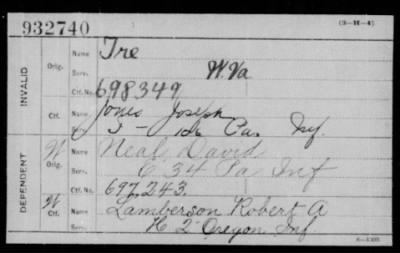 932740 (3-H-4)
INVALID
Orig. Name Ire
Serv. W.Va
Ctf. No. 698349
Ctf. Name Jones Joseph
Serv. I - 106 Pa. Inf.
DEPENDENT
W Orig. Name Neal, David
Serv. C 34 Pa Inf
Ctf. No. 697,243.
W Ctf. Name Lamberson Robert A
Serv. H 2" Oregon Inf